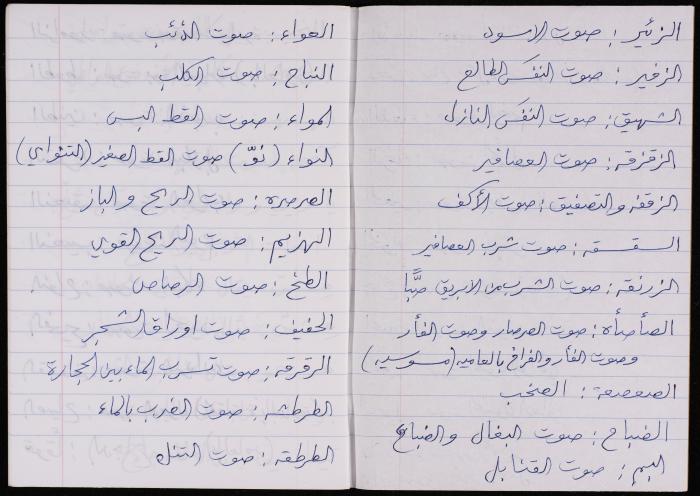 الزئير: صوت الاسود
الزفير: صوت النفَس الطالع
الشهيق: صوت النفَس النازل
الزقزقه: صوت العصافير
الزقفه والتصفيق: صوت الأكف
السقسقه: صوت شرب العصافير
الزرنقه: صوت الشرب من الابريق صبًّا
الصأصأة: صوت الصرصار وصوت الفأر
وصوت الفأر والفراخ بالعاميه (سوسيه)
الصعصعة: الصخب
الضباح: صوت البغال والضباع
البم: صوت القنابل
العواء: صوت الذئب
النباح: صوت الكلب
المواء: صوت القط البس
النواء (نوّ) صوت القط الصغير (التنواي)
الصرصرة: صوت الريح والباز
الهزيم: صوت الريح القوي
الطخ: صوت الرصاص
الحفيف: صوت اوراق الشجر
الرقرقة: صوت تسرب الماء بين الحجارة
الطرطشه: صوت الضرب بالماء
الطرطقه: صوت التنك